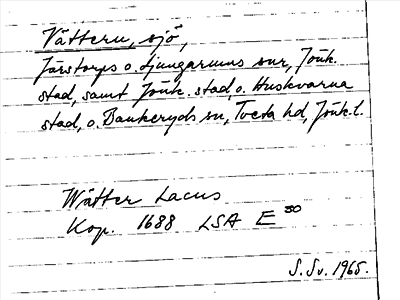 Vättern, sjö,
Järstorps o. Ljungarums snr, Jönk.
stad, samt Jönk. stad, o. Huskvarna
stad, o. Bankeryds sn, Tveta hd, Jönk. l.
Wätter Lacus
Kop. 1688 LSA E 50
S. Sv. 1965.